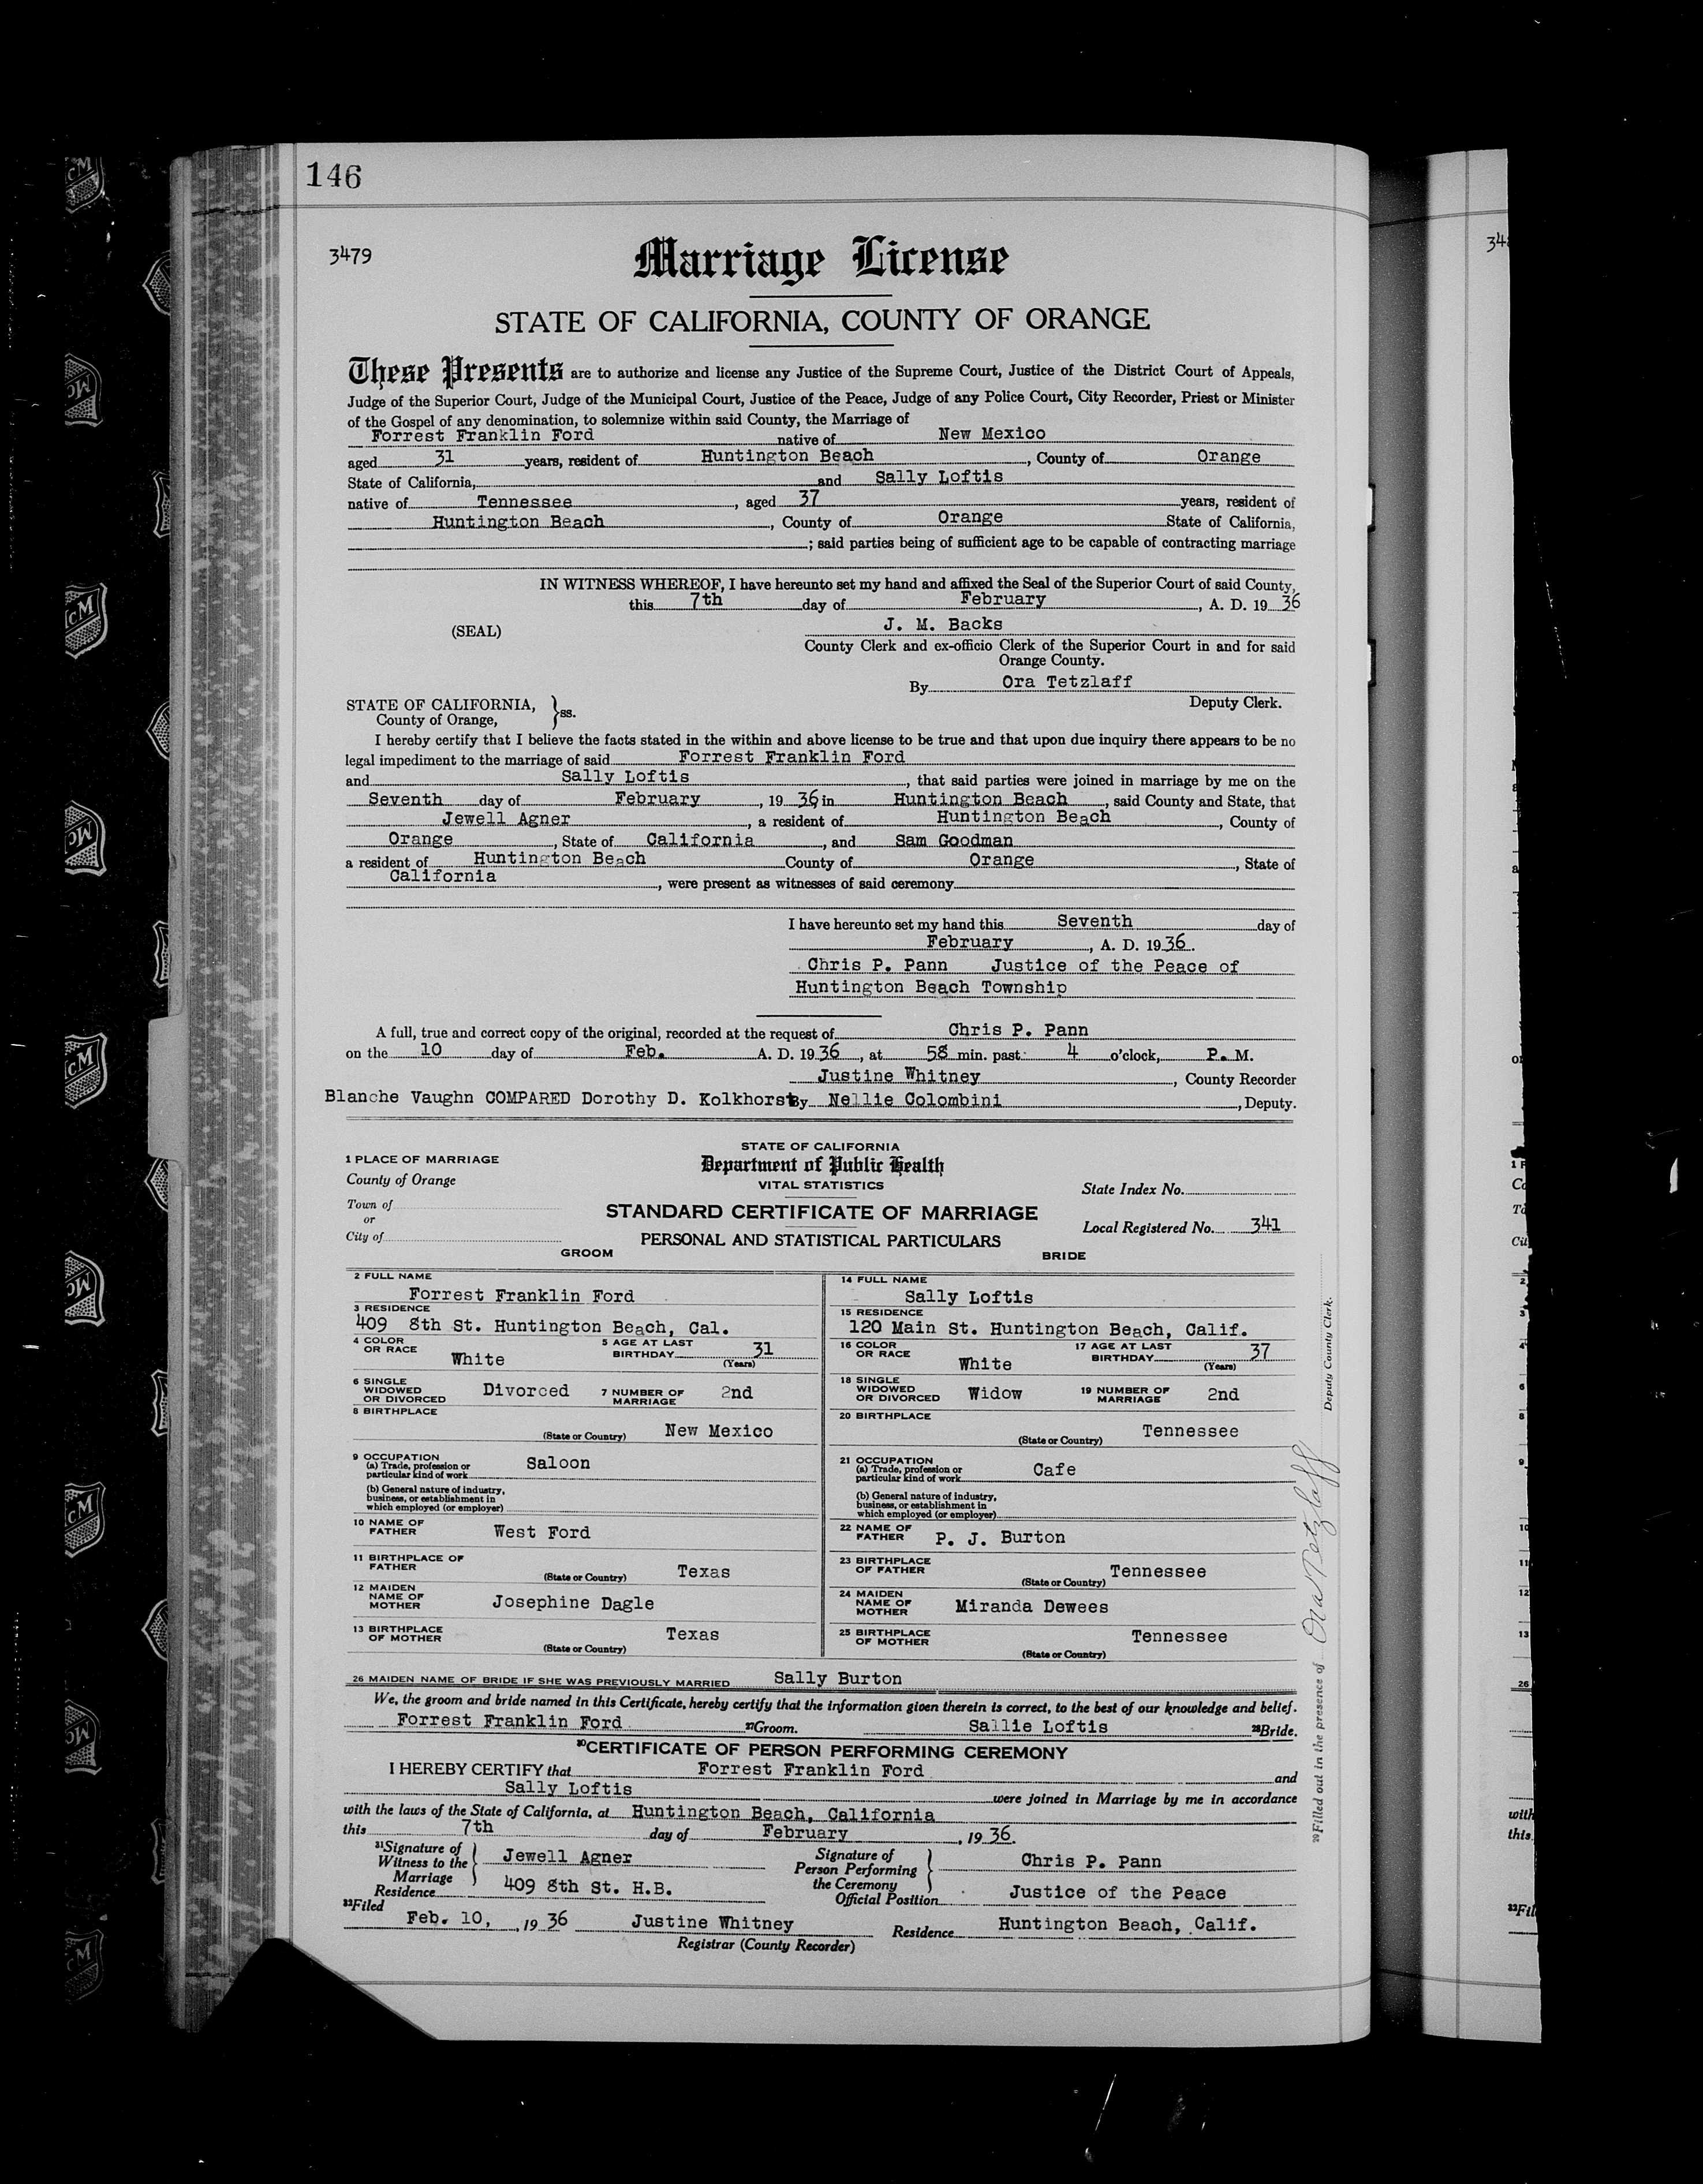 146
3479
Marriage License
STATE OF CALIFORNIA, COUNTY OF ORANGE
These Presents are to authorize and license any Justice of the Supreme Court, Justice of the District Court of Appeals,
Judge of the Superior Court, Judge of the Municipal Court, Justice of the Peace, Judge of any Police Court, City Recorder, Priest or Minister
of the Gospel of any denomination, to solemnize within said County, the Marriage of
Forrest Franklin Ford native of New Mexico
aged 31 years, resident of Huntington Beach, County of Orange
State of California, and Sally Loftis
native of Tennessee, aged 37 years, resident of
Huntington Beach, County of Orange State of California,
; said parties being of sufficient age to be capable of contracting marriage
IN WITNESS WHEREOF, I have hereunto set my hand and affixed the Seal of the Superior Court of said County,
this 7th day of February, A. D. 19 36
(SEAL) J. M. Backs
County Clerk and ex-officio Clerk of the Superior Court in and for said
Orange County.
By Ora Tetzlaff
Deputy Clerk.
STATE OF CALIFORNIA,
County of Orange, } ss.
I hereby certify that I believe the facts stated in the within and above license to be true and that upon due inquiry there appears to be no
legal impediment to the marriage of said Forrest Franklin Ford
and Sally Loftis, that said parties were joined in marriage by me on the
Seventh day of February, 19 36 in Huntington Beach, said County and State, that
Jewell Agner, a resident of Huntington Beach, County of
Orange, State of California, and Sam Goodman
a resident of Huntington Beach County of Orange, State of
California, were present as witnesses of said ceremony
I have hereunto set my hand this Seventh day of
February, A. D. 19 36.
Chris P. Pann Justice of the Peace of
Huntington Beach Township
A full, true and correct copy of the original, recorded at the request of Chris P. Pann
on the 10 day of Feb. A. D. 19 36, at 58 min. past 4 o'clock, P. M.
Justine Whitney, County Recorder
Blanche Vaughn COMPARED Dorothy D. Kolkhorst By Nellie Colombini, Deputy.
STATE OF CALIFORNIA
Department of Public Health
VITAL STATISTICS
1 PLACE OF MARRIAGE
County of Orange
State Index No.
Town of
or
City of
STANDARD CERTIFICATE OF MARRIAGE
Local Registered No. 341
PERSONAL AND STATISTICAL PARTICULARS
GROOM BRIDE
2 FULL NAME
Forrest Franklin Ford
3 RESIDENCE
409 8th St. Huntington Beach, Cal.
4 COLOR OR RACE White 5 AGE AT LAST BIRTHDAY 31 (Years)
6 SINGLE WIDOWED OR DIVORCED Divorced 7 NUMBER OF MARRIAGE 2nd
8 BIRTHPLACE
(State or Country) New Mexico
9 OCCUPATION
(a) Trade, profession or particular kind of work Saloon
(b) General nature of industry, business, or establishment in which employed (or employer)
10 NAME OF FATHER West Ford
11 BIRTHPLACE OF FATHER (State or Country) Texas
12 MAIDEN NAME OF MOTHER Josephine Dagle
13 BIRTHPLACE OF MOTHER (State or Country) Texas
14 FULL NAME
Sally Loftis
15 RESIDENCE
120 Main St. Huntington Beach, Calif.
16 COLOR OR RACE White 17 AGE AT LAST BIRTHDAY 37 (Years)
18 SINGLE WIDOWED OR DIVORCED Widow 19 NUMBER OF MARRIAGE 2nd
20 BIRTHPLACE
(State or Country) Tennessee
21 OCCUPATION
(a) Trade, profession or particular kind of work Cafe
(b) General nature of industry, business, or establishment in which employed (or employer)
22 NAME OF FATHER P. J. Burton
23 BIRTHPLACE OF FATHER (State or Country) Tennessee
24 MAIDEN NAME OF MOTHER Miranda Dewees
25 BIRTHPLACE OF MOTHER (State or Country) Tennessee
26 MAIDEN NAME OF BRIDE IF SHE WAS PREVIOUSLY MARRIED Sally Burton
We, the groom and bride named in this Certificate, hereby certify that the information given therein is correct, to the best of our knowledge and belief.
Forrest Franklin Ford 27Groom. Sallie Loftis 28Bride.
30CERTIFICATE OF PERSON PERFORMING CEREMONY
I HEREBY CERTIFY that Forrest Franklin Ford and
Sally Loftis were joined in Marriage by me in accordance
with the laws of the State of California, at Huntington Beach, California
this 7th day of February, 19 36.
31Signature of Witness to the Marriage } Jewell Agner
Residence 409 8th St. H.B.
Signature of Person Performing the Ceremony } Chris P. Pann
Official Position Justice of the Peace
32Filed
Feb. 10, 19 36 Justine Whitney
Registrar (County Recorder)
Residence Huntington Beach, Calif.
29Filled out in the presence of Ora Tetzlaff Deputy County Clerk.